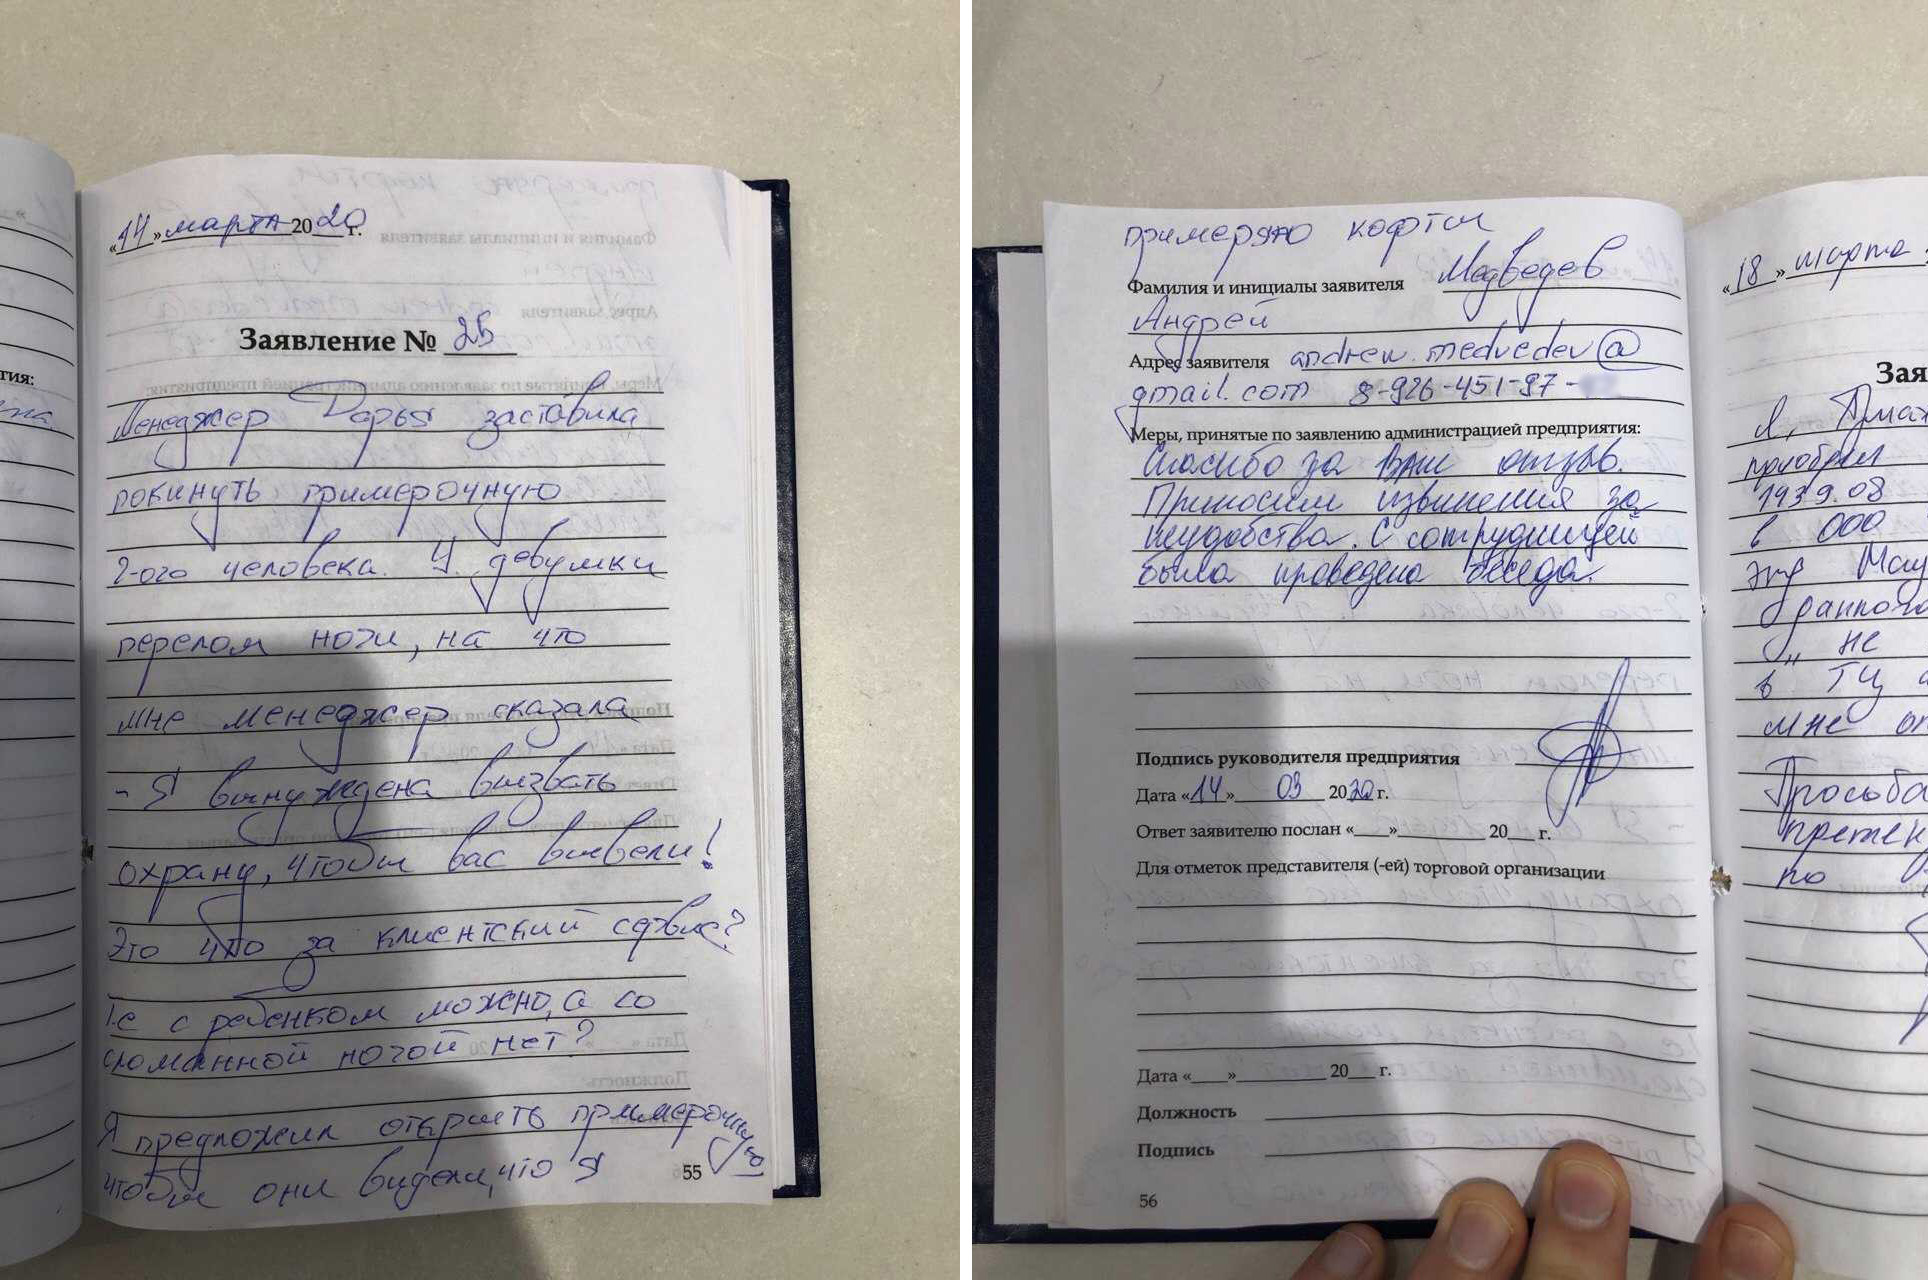 тия:
«14» марта 2020 г.
Заявление № 25
Менеджер Дарья заставила
покинуть примерочную
2-ого человека. У девушки
перелом ноги, на что
мне менеджер сказала
- Я вынуждена вызвать
охрану, чтобы вас вывели!
Это что за клиентский сервис?
Т.е с ребенком можно, а со
сломанной ногой нет?
Я предложил открыть примерочную
чтобы они видели, что я
55
примеряю кофты
Фамилия и инициалы заявителя Медведев
Андрей
Адрес заявителя andrew.medvedev@
gmail.com 8-926-451-97-
Меры, принятые по заявлению администрацией предприятия:
Спасибо за Ваш отзыв.
Приносим извинения за
неудобства. С сотрудницей
была проведена беседа.
Подпись руководителя предприятия
Дата «14» 03 2020 г.
Ответ заявителю послан «___»________ 20__ г.
Для отметок представителя (-ей) торговой организации
Дата «___»________ 20__ г.
Должность
Подпись
56
«18» марта
Зая
Я,
приобрел
1939.08
в ООО
не
в ТЦ
мне
Просьба
претен
по